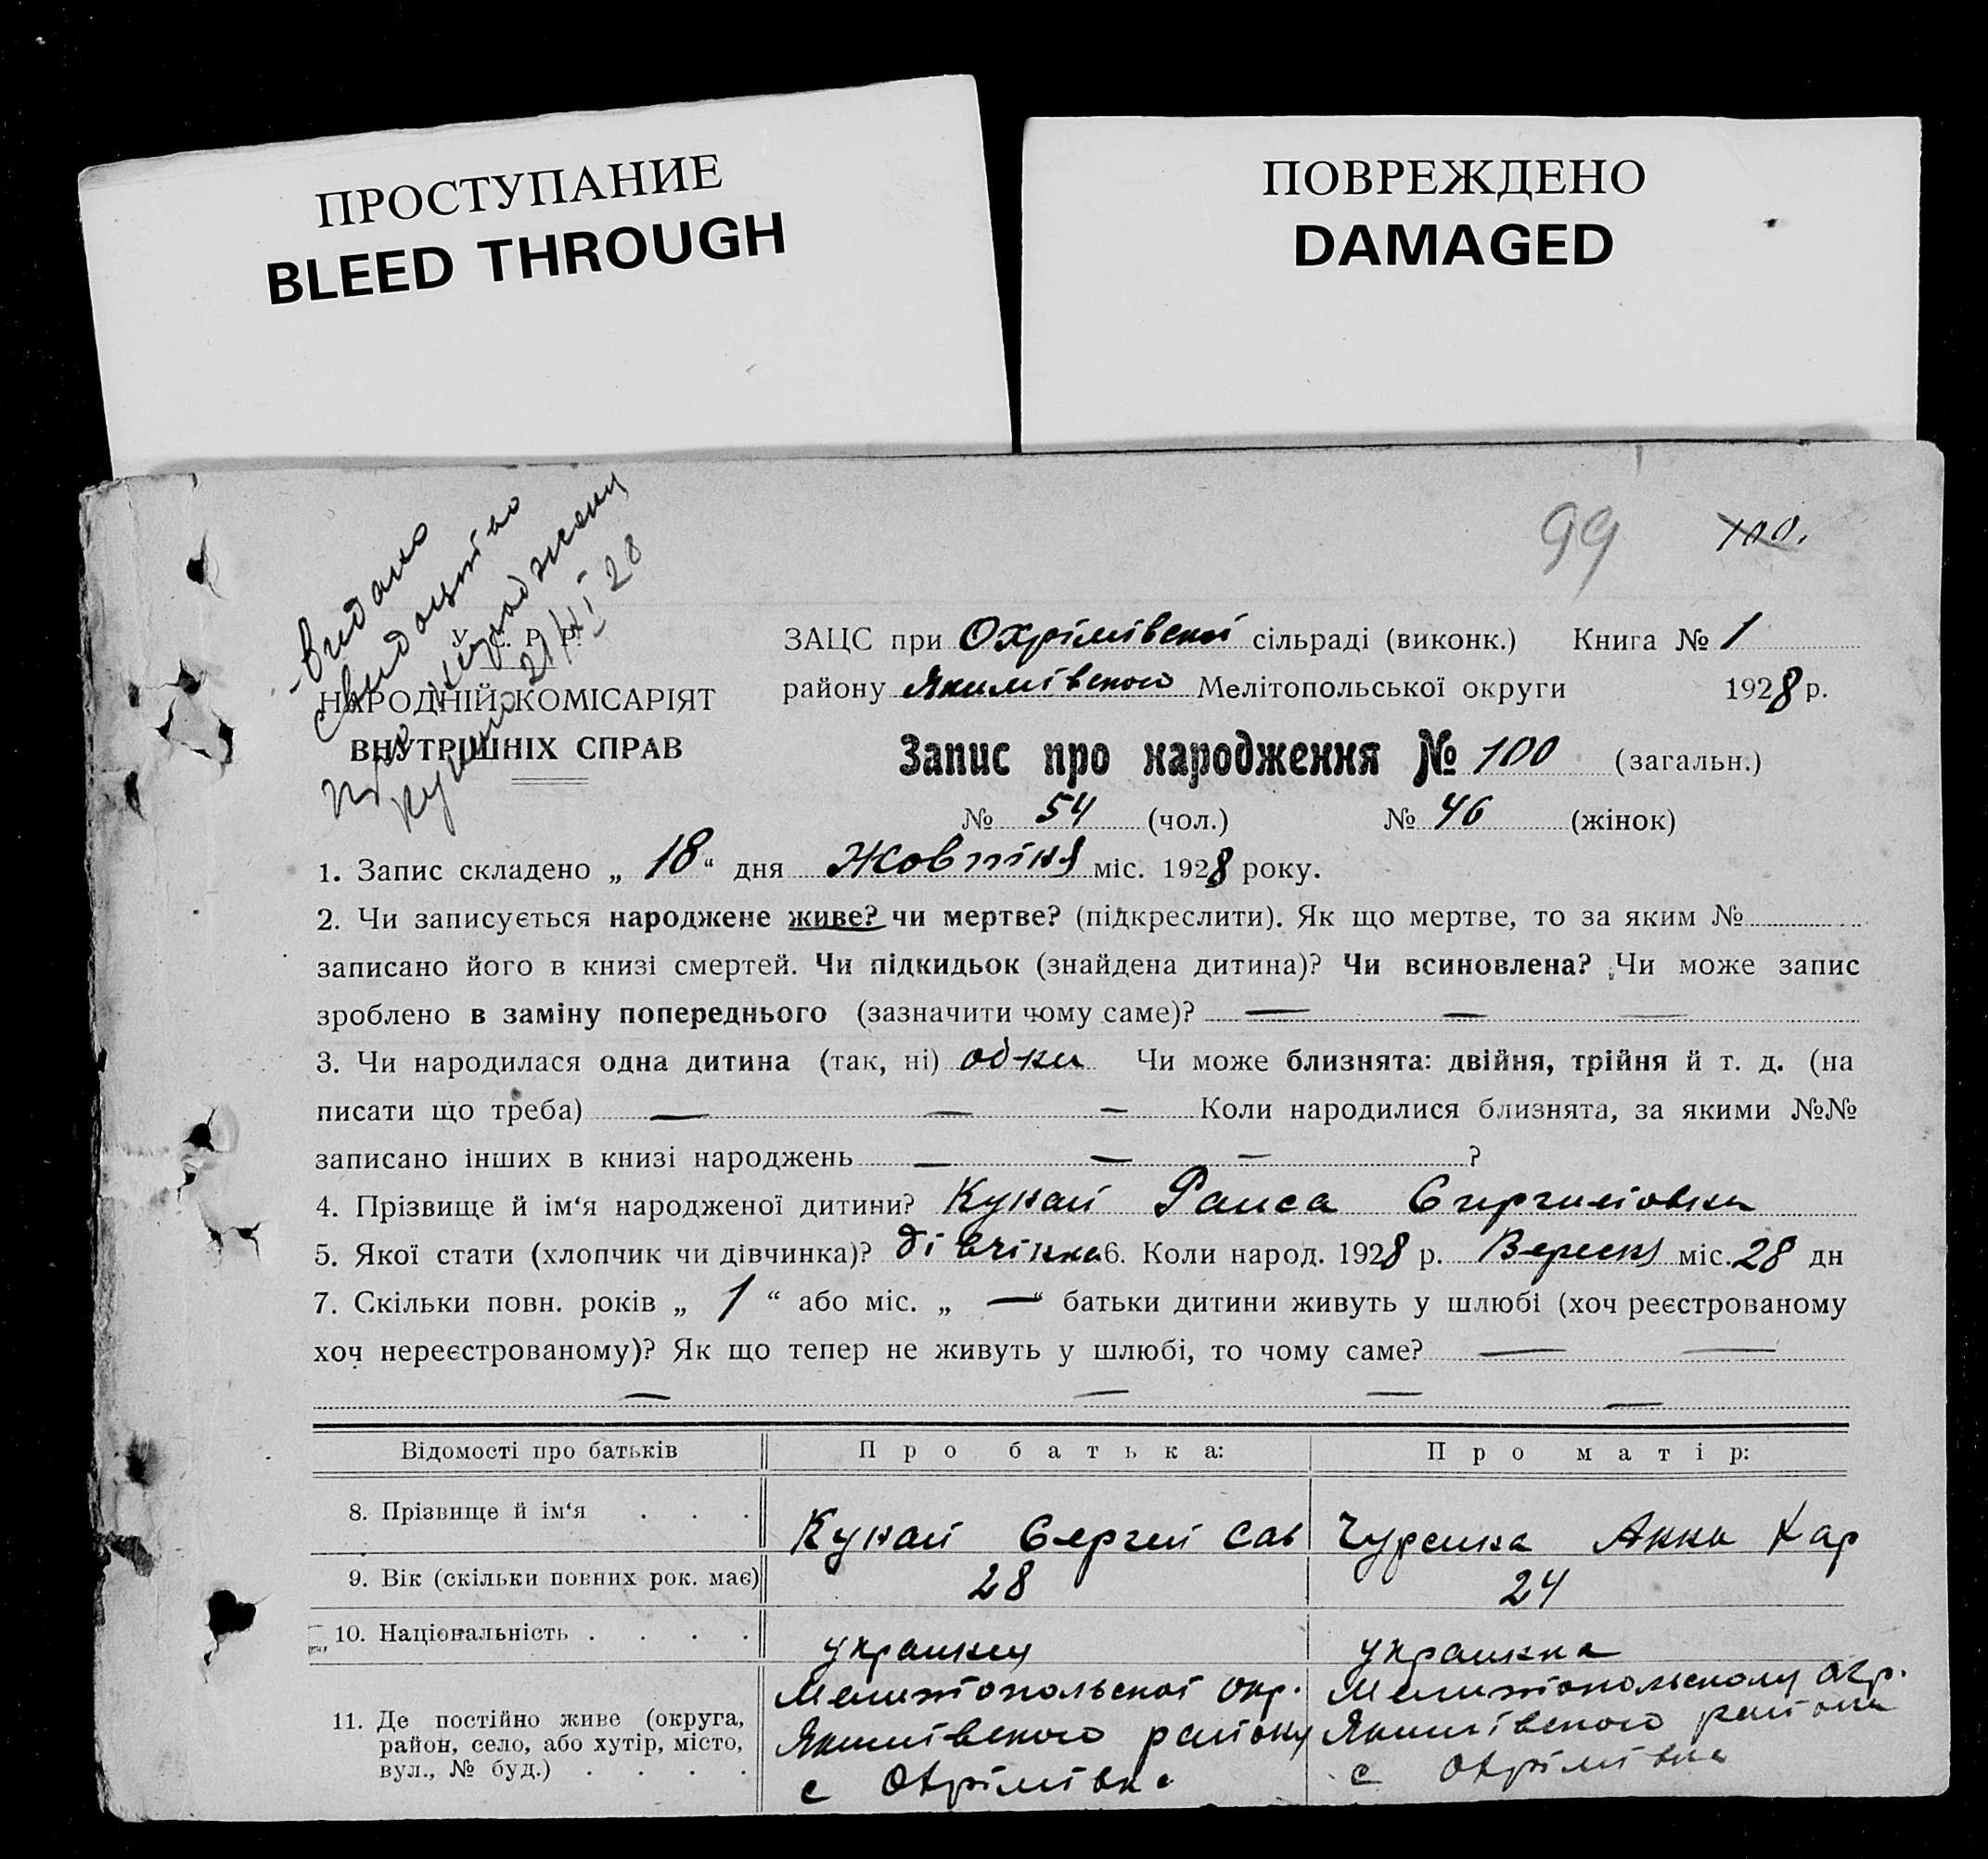 ПРОСТУПАНИЕ
BLEED THROUGH
ПОВРЕЖДЕНО
DAMAGED
99 100.
Видано
свидоцтво
про народжени
21/XI 28
У. С. Р. Р.
НАРОДНІЙ КОМІСАРІЯТ
ВНУТРІШНІХ СПРАВ
ЗАЦС при Охрімівскої сільраді (виконк.) Книга № 1
району Якимівского Мелітопольської округи 1928 р.
Запис про народження № 100 (загальн.)
№ 54 (чол.) № 46 (жінок)
1. Запис складено „ 18 “ дня Жовтня міс. 1928 року.
2. Чи записується народжене живе? чи мертве? (підкреслити). Як що мертве, то за яким №
записано його в книзі смертей. Чи підкидьок (знайдена дитина)? Чи всиновлена? Чи може запис
зроблено в заміну попереднього (зазначити чому саме)? — — —
3. Чи народилася одна дитина (так, ні) одна Чи може близнята: двійня, трійня й т. д. (на
писати що треба) — — — Коли народилися близнята, за якими №№
записано інших в книзі народжень — — — ?
4. Прізвище й ім‘я народженої дитини? Кунай Раиса Сиргиіовна
5. Якої стати (хлопчик чи дівчинка)? дівчінка 6. Коли народ. 1928 р. Вересня міс. 28 дн
7. Скільки повн. років „ 1 “ або міс. „ — “ батьки дитини живуть у шлюбі (хоч реєстрованому
хоч нереєстрованому)? Як що тепер не живуть у шлюбі, то чому саме? — —
— — — —
Відомості про батьків Про батька: Про матір:
8. Прізвище й ім‘я . . . Кунай Сергей Сав Анна Хар
9. Вік (скільки повних рок. має) 28 24
10. Національність . . . . украинец украинка
11. Де постійно живе (округа,
район, село, або хутір, місто,
вул., № буд.) . . . .
Мелитопольскої окр.
Якимівского району
с Охрімівка
Мелитопольскому окр.
Якимівского района
с Охрімівка